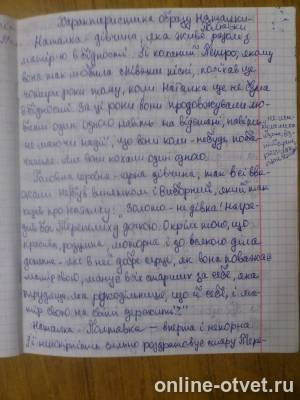 Характеристика образу Наталки-
Полтавки
Наталка - дівчина, яка живе разом з
матір'ю в бідності. Її коханий Петро, якому
вона так любила співати пісні, поїхав ще
чотири роки тому, коли Наталка ще не була
в бідності. За ці роки вони продовжували лю-
бити один одного навіть на відстані, навіть
не маючи надії, що вони коли-небудь поба-
чаться. Але вони кохали один одного.
Головна героїня - гарна дівчина, так всі вва-
жали. Не був винятком і Виборний, який так
казав про Наталку: „Золото - не дівка! Наго-
родив Бог Терпилиху дочкою. Окрім того, що
красива, розумна, моторна і до всякого діла
дотепна - яке в неї добре серце, як вона поважає
матір свою, шанує всіх старших за себе, яка
трудяща, яка рукодільниця, що й себе, і ма-
тір свою на світі держить!"
Наталка - Полтавка - вперта і непокірна.
Її непокірність сильно роздратовує стару Тер-
online-otvet.ru